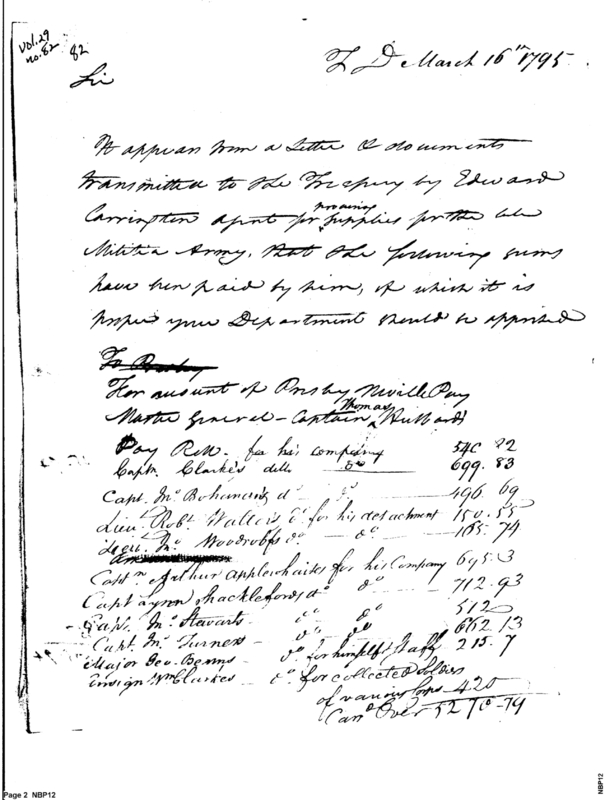 vol. 29
no. 82
82
T D March 16th 1795.
Sir
It appears from a Letter & documents
transmitted to the Treasury by Edward
Carrington agent for procuring supplies for the late
Militia Army, that the following sums
have been paid by him, of which it is
proper your Department should be apprised
To Presby
For account of Presby Neville Pay
Master General - Captain Thomas Hubbard's
Pay Roll for his company 540 22
Captn Clarke's ditto do 699. 83
Capt. Jno Bohannan's do do 496 69
Lieut. Robt. Walters do for his detachment 150. 55
Lieut. Jno Woodroof's do do 165. 74
Captn Arthur Applewhaites for his Company 695. 3
Capt Lynn Shackleford's do do 712. 93
Capt. Jno. Stewarts do do 512
Capt. Jno. Turners do do 652 13
Major Geo. Benns do for himself & Staff 215. 7
Ensign Wm Clarkes do for collected Soldiers
of various Corps 420
Carrd Over 5270-79
Page 2 NBP12
NBP12